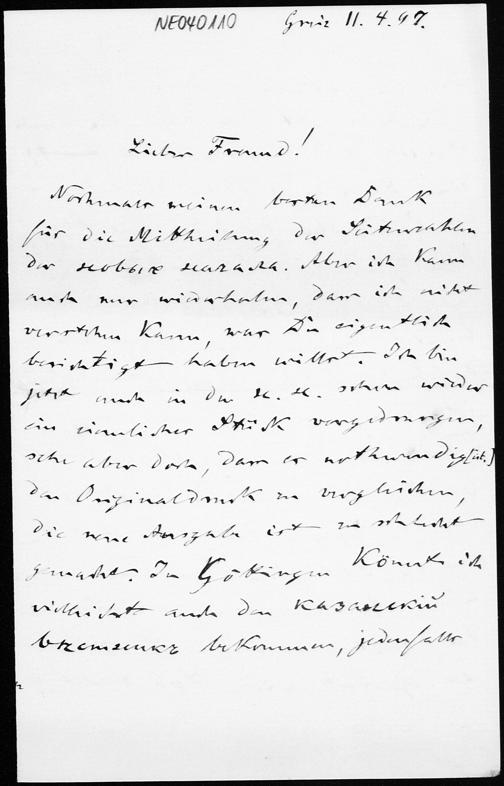 NE040110
Greiz 11.4.97.
Lieber Freund!
Nochmals meinen besten Dank
für die Mittheilung der Seitenzahlen
der новыхъ началъ. Aber ich kann
auch nur wiederholen, dass ich nicht
verstehen kann, was Du eigentlich
berichtigt haben willst. Ich bin
jetzt auch in den н. н. schon wieder
ein ziemliches Stück vorgedrungen,
sehe aber doch, dass es nothwendig
den Originaldruck zu vergleichen,
die neue Ausgabe ist zu schlecht
gemacht. In Göttingen könnte ich
vielleicht auch den казанскій
bekommen, jedenfalls